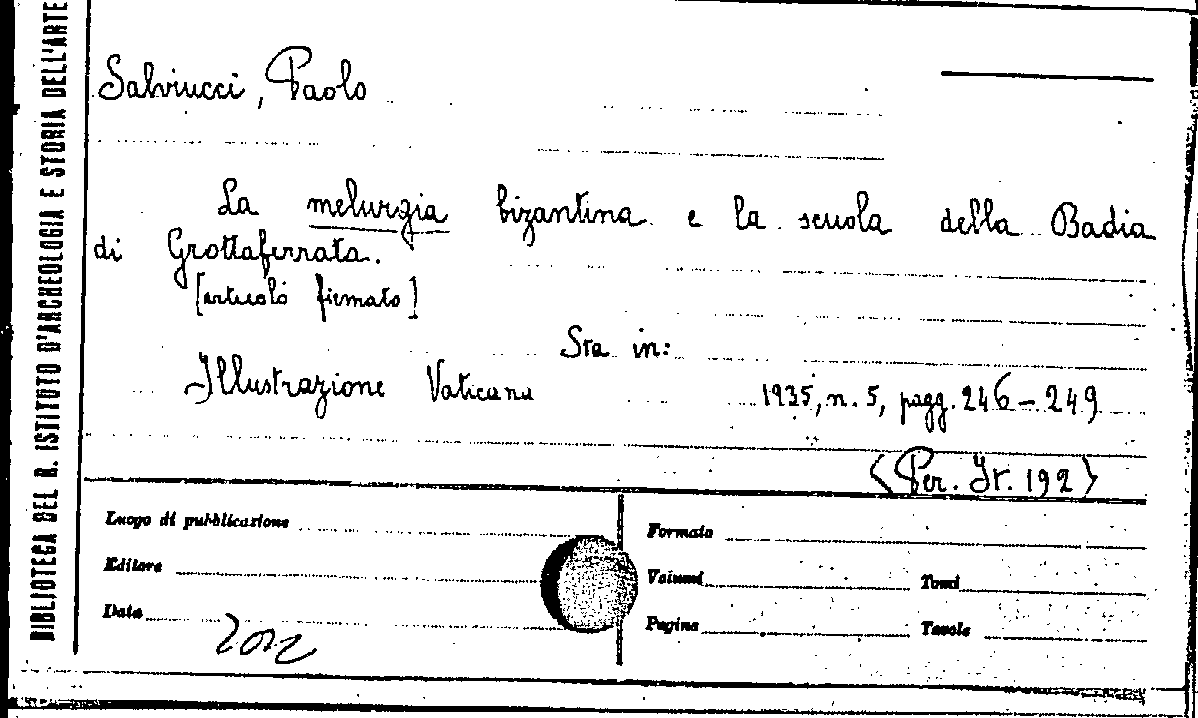 BIBLIOTECA DEL R. ISTITUTO D'ARCHEOLOGIA E STORIA DELL'ARTE
Salviucci, Paolo
La melurgia bizantina e la scuola della Badia
di Grottaferrata.
[articolo firmato]
Sta in:
Illustrazione Vaticana 1935, n. 5, pagg. 246-249
<Per. It. 192>
Luogo di pubblicazione
Editore
Data
Formato
Volumi Tomi
Pagine Tavole